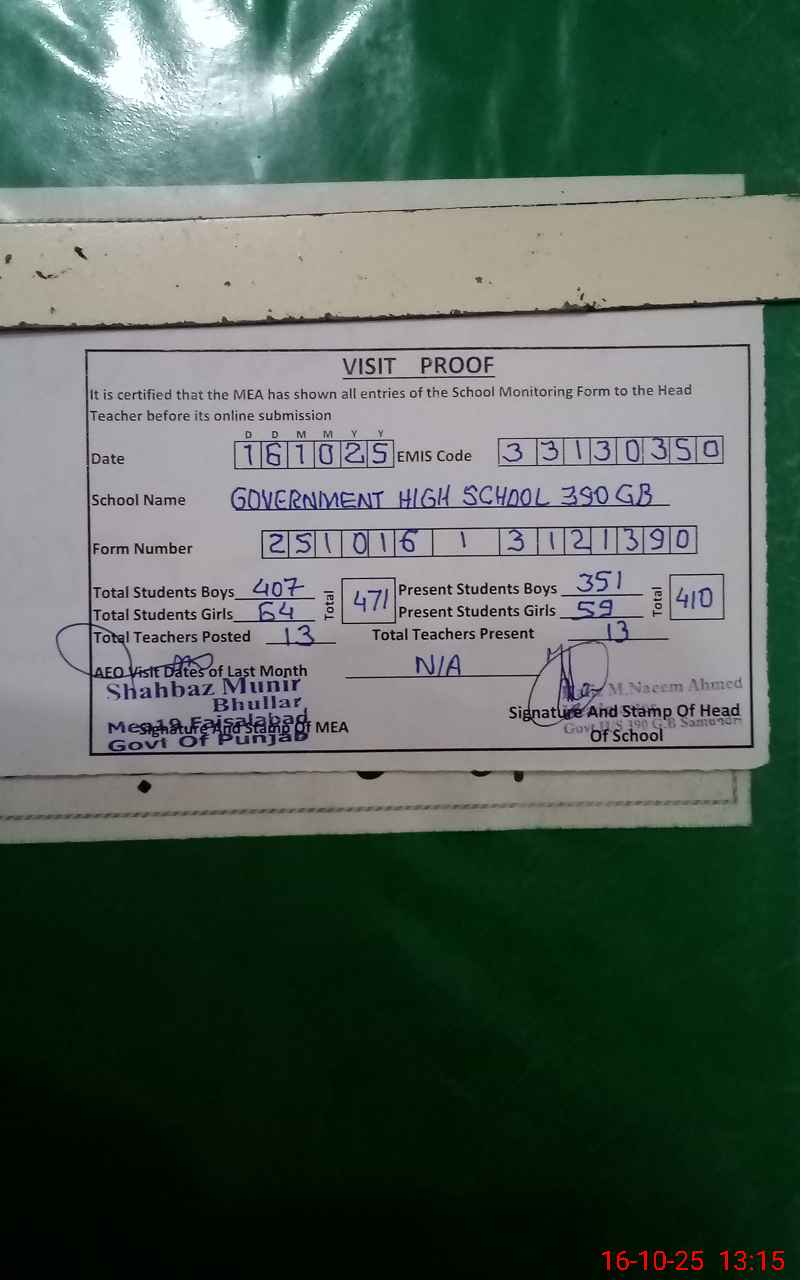 VISIT PROOF
It is certified that the MEA has shown all entries of the School Monitoring Form to the Head
Teacher before its online submission
D D M M Y Y
Date 161025 EMIS Code 33130350
School Name GOVERNMENT HIGH SCHOOL 390 GB
Form Number 251016 1 3121390
Total Students Boys 407 Total 471 Present Students Boys 351 Total 410
Total Students Girls 64 Present Students Girls 59
Total Teachers Posted 13 Total Teachers Present 13
AEO Visit Dates of Last Month N/A
Shahbaz Munir
Bhullar
Mea19 Faisalabad
Govt Of Punjab
Signature And Stamp Of MEA
M.Naeem Ahmed
Signature And Stamp Of Head
Govt H/S 390 G.B Samundri
Of School
16-10-25 13:15